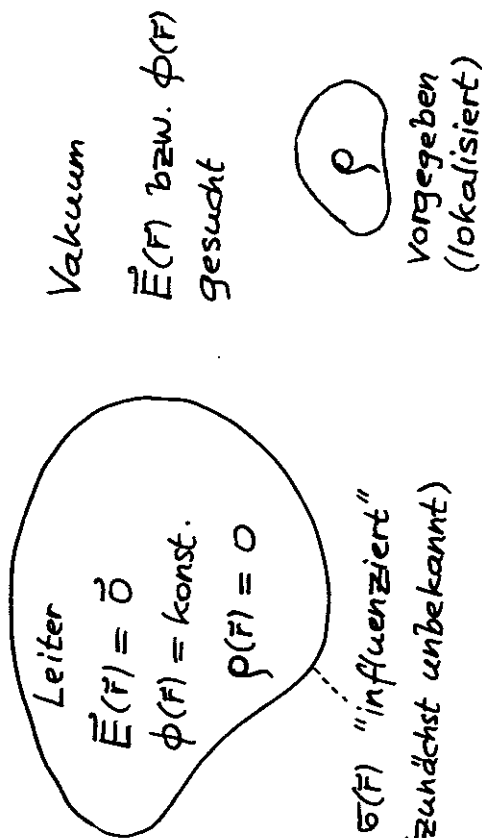 Leiter
E⃗(r⃗) = 0⃗
ϕ(r⃗) = konst.
ρ(r⃗) = 0
σ(r⃗) "influenziert"
zunächst unbekannt)
Vakuum
E⃗(r⃗) bzw. ϕ(r⃗)
gesucht
ρ
vorgegeben
(lokalisiert)